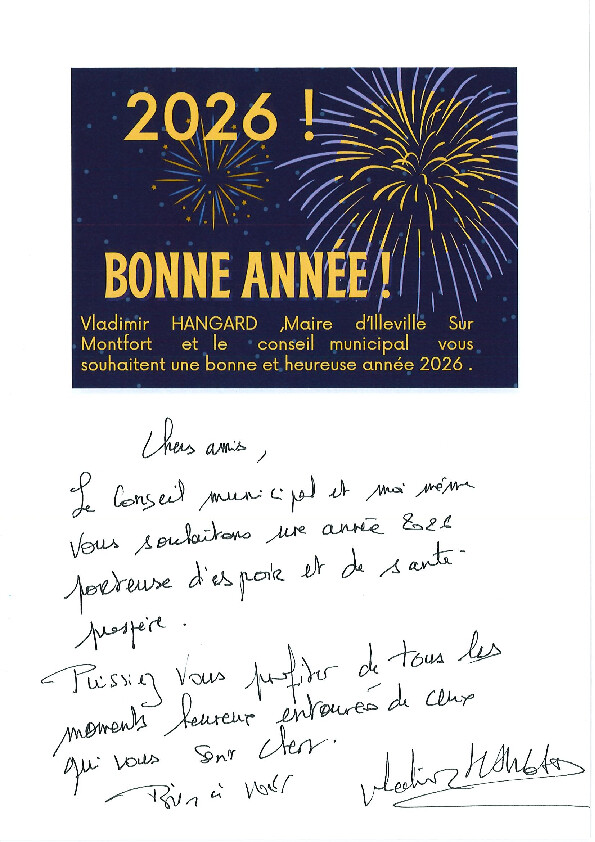 2026 !
BONNE ANNÉE !
Vladimir HANGARD ,Maire d'Illeville Sur
Montfort et le conseil municipal vous
souhaitent une bonne et heureuse année 2026 .
Chers amis,
Le Conseil municipal et moi même
vous souhaitons une année 2026
porteuse d'espoir et de santé
prospère.
Puissiez vous profiter de tous les
moments heureux entourés de ceux
qui vous sont chers.
Bien à vous
Vladimir HANGARD